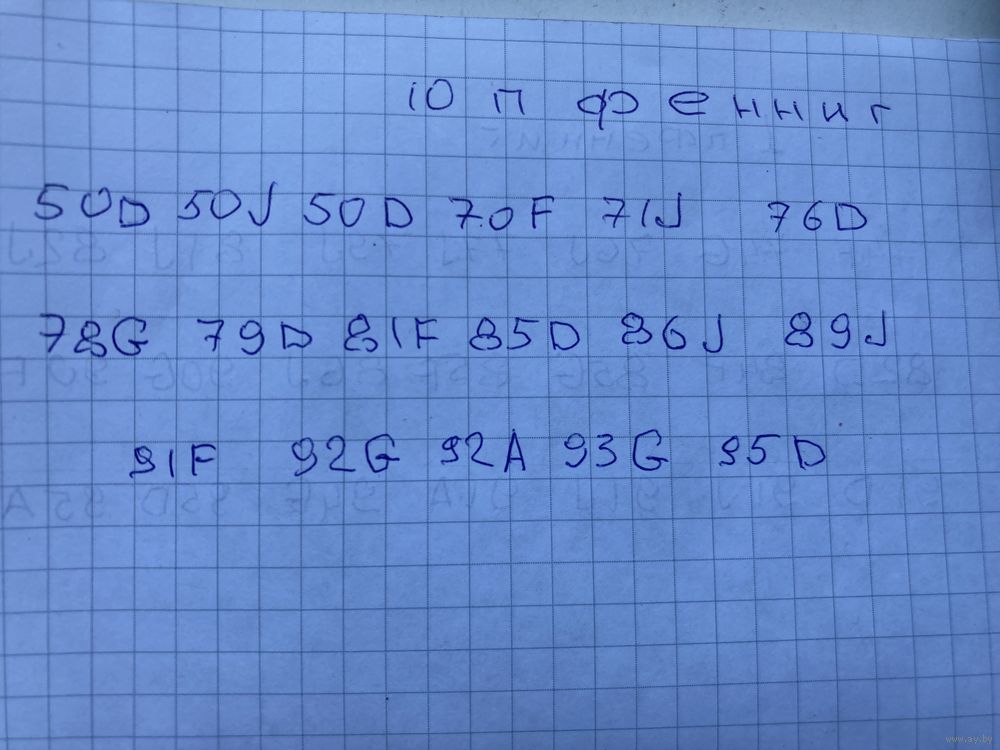 10 пфенниг
50D 50J 50D 70F 71J 76D
78G 79D 81F 85D 86J 89J
91F 92G 92A 93G 95D
www.ay.by